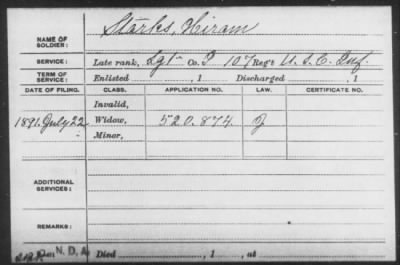 NAME OF SOLDIER: Starks, Hiram
SERVICE: Late rank, Sgt Co. I 107 Reg't U. S. C. Inf.
TERM OF SERVICE: Enlisted , 1 Discharged , 1
DATE OF FILING. CLASS. APPLICATION NO. LAW. CERTIFICATE NO.
Invalid,
1891. July 22 Widow, 520.874. J
Minor,
ADDITIONAL SERVICES:
REMARKS:
N. D. A. Died , 1 , at